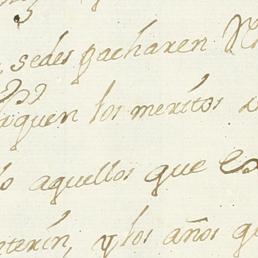 sedes pacharen
quen los meritos
aquellos que es
nterin, y los años qe